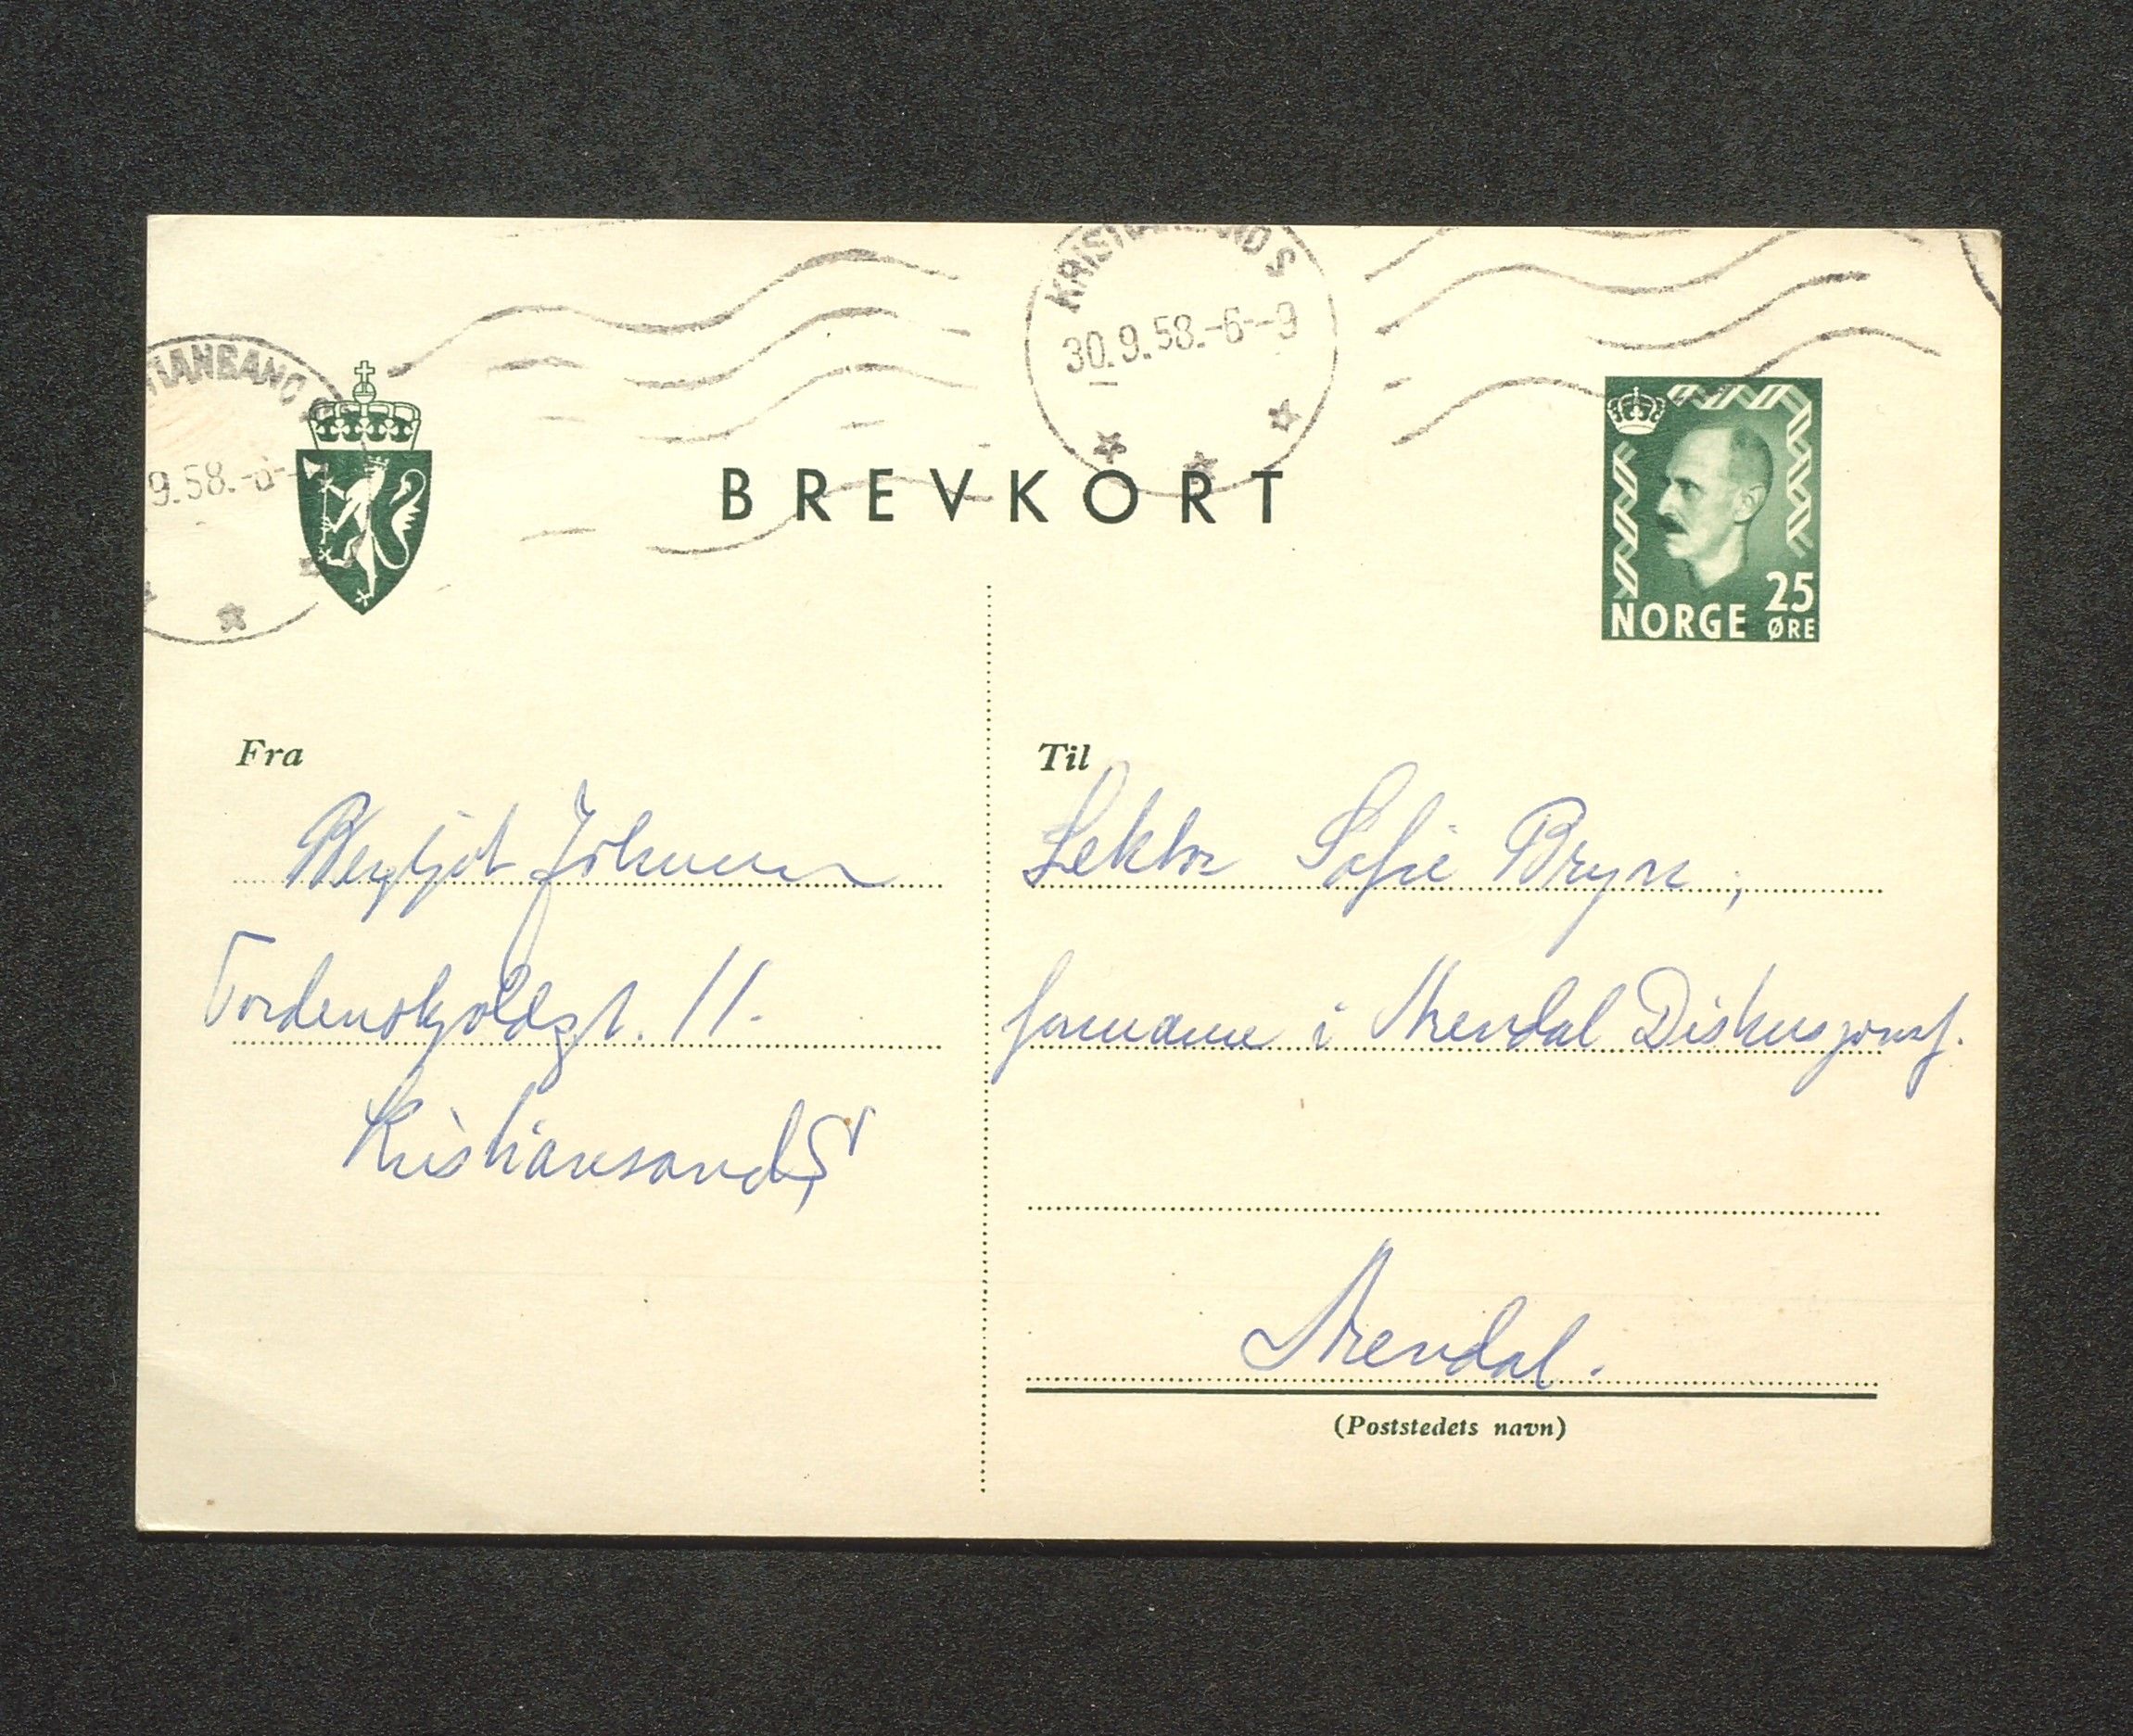 KRISTIANSAND S
30.9.58.-6--9
TIANSAND
9.58.-6-
BREVKORT
25
NORGE ØRE
Fra
Til
Bergljot Johnsen
Lektor Sofie Bryn,
Tordenskjoldsgt. 11.
formann i Arendal Diskusjonsf.
Kristiansand S
Arendal.
(Poststedets navn)